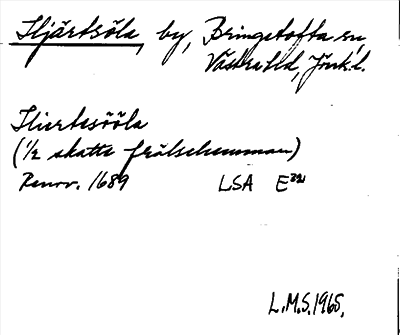 Hjärtsöla, by, Bringetofta sn,
Västra hd, Jönk. l.
Hiertesööla
(1/2 skatte frälsehemman)
Renov. 1689 LSA E
L.M.S. 1965.